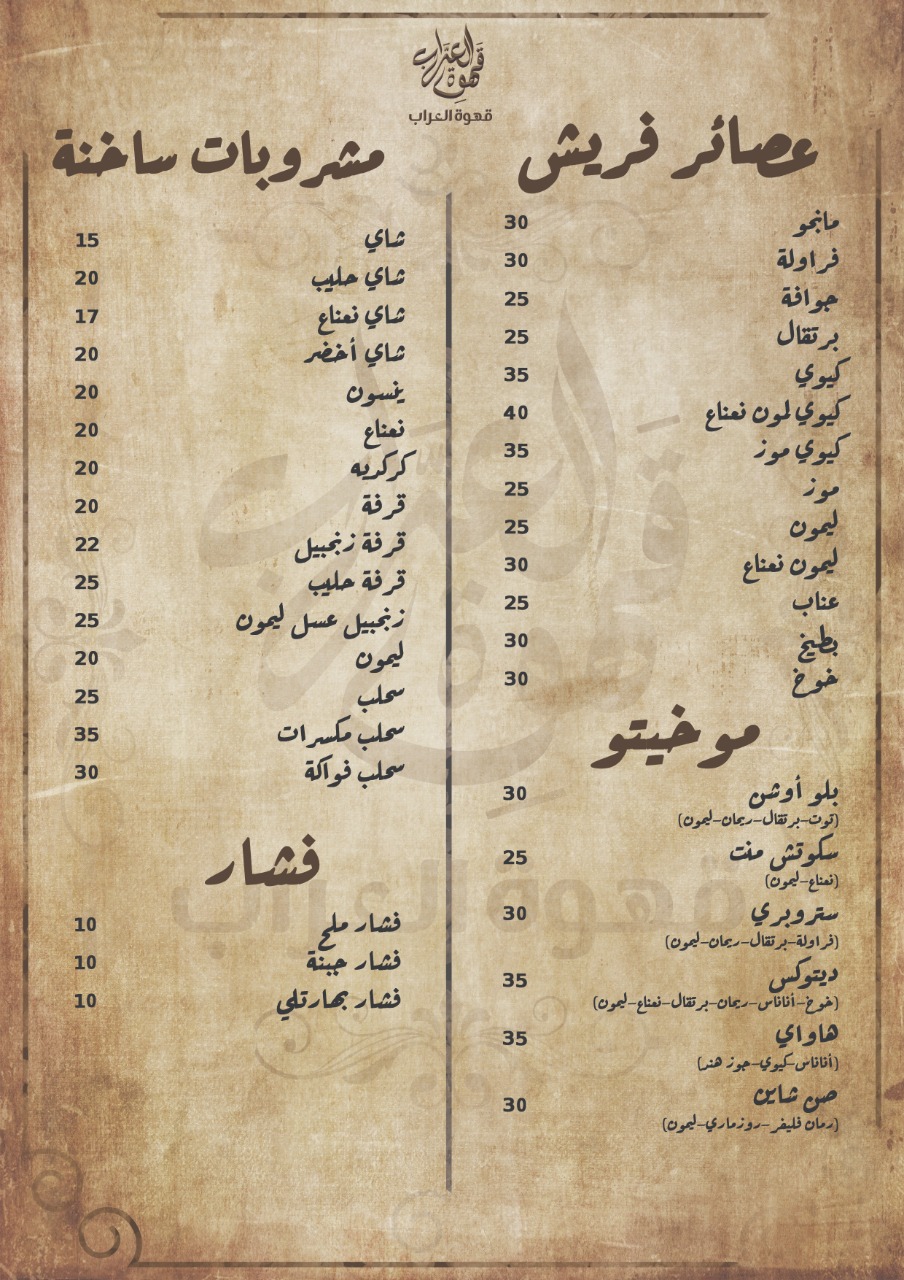 قهوة العراب
قهوة العراب
عصائر فريش
مانجو 30
فراولة 30
جوافة 25
برتقال 25
كيوي 35
كيوي لمون نعناع 40
كيوي موز 35
موز 25
ليمون 25
ليمون نعناع 30
عناب 25
بطيخ 30
خوخ 30
موخيتو
بلو أوشن 30
(توت-برتقال-ريحان-ليمون)
سكوتش منت 25
(نعناع-ليمون)
ستروبري 30
(فراولة-برتقال-ريحان-ليمون)
ديتوكس 35
(خوخ-أناناس-ريحان-برتقال-نعناع-ليمون)
هاواي 35
(أناناس-كيوي-جوز هند)
صن شاين 30
(رمان فليفر-روزماري-ليمون)
مشروبات ساخنة
شاي 15
شاي حليب 20
شاي نعناع 17
شاي أخضر 20
ينسون 20
نعناع 20
كركديه 20
قرفة 20
قرفة زنجبيل 22
قرفة حليب 25
زنجبيل عسل ليمون 25
ليمون 20
سحلب 25
سحلب مكسرات 35
سحلب فواكة 30
فشار
فشار ملح 10
فشار جبنة 10
فشار بهارتلي 10
قهوة العراب